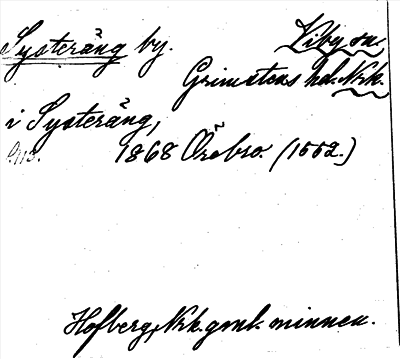 Systeräng by. Viby sn.
Grimstens hd. Nrk.
i Systeräng,
s. 113. 1868 Örebro. (1552.)
Hofberg, Nrk. gml. minnen.